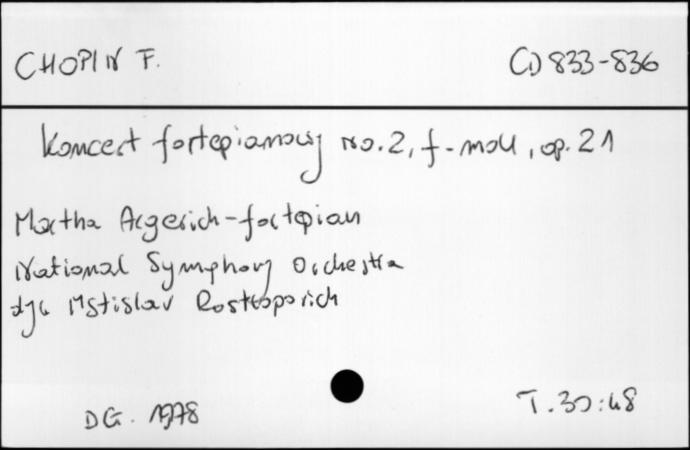 CHOPIN F.
CD 833-836
Koncert fortepianowy no.2, f-moll, op. 21
Martha Argerich-fortepian
National Symphony Orchestra
dyr Mstislav Rostropovich
DG. 1978
T. 30:48